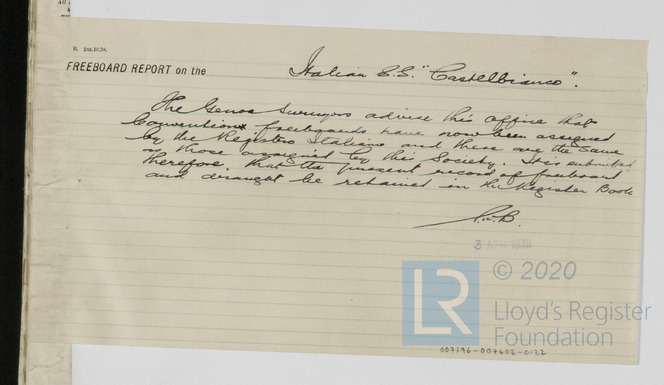 FREEBOARD REPORT on the Italian S.S. "Castelbianco".
The Genoa Surveyors advise this office that
Convention freeboards have now been assigned
by the Registro Italiano and these are the same
as those assigned by this Society. It is submitted
therefore, that the present record of freeboard
and draught be retained in the Register Book
3 APR 1939
LR
© 2020
Lloyd's Register
Foundation
007396-007602-0122